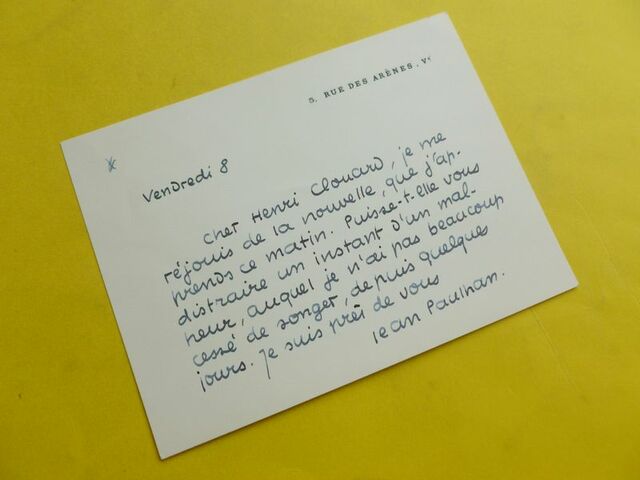 5, RUE DES ARÈNES . Vᵉ
Vendredi 8
Cher Henri Clouard, je me
réjouis de la nouvelle, que j'ap-
prends ce matin. Puisse-t-elle vous
distraire un instant d'un mal-
heur, auquel je n'ai pas beaucoup
cessé de songer, depuis quelques
jours. Je suis près de vous
Jean Paulhan.